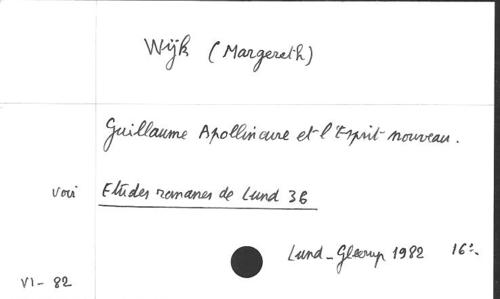 Wijk (Margereth)
Guillaume Apollinaire et l'Esprit nouveau.
voir Etudes romanes de Lund 36
Lund - Gleerup 1982 16:-
VI - 82